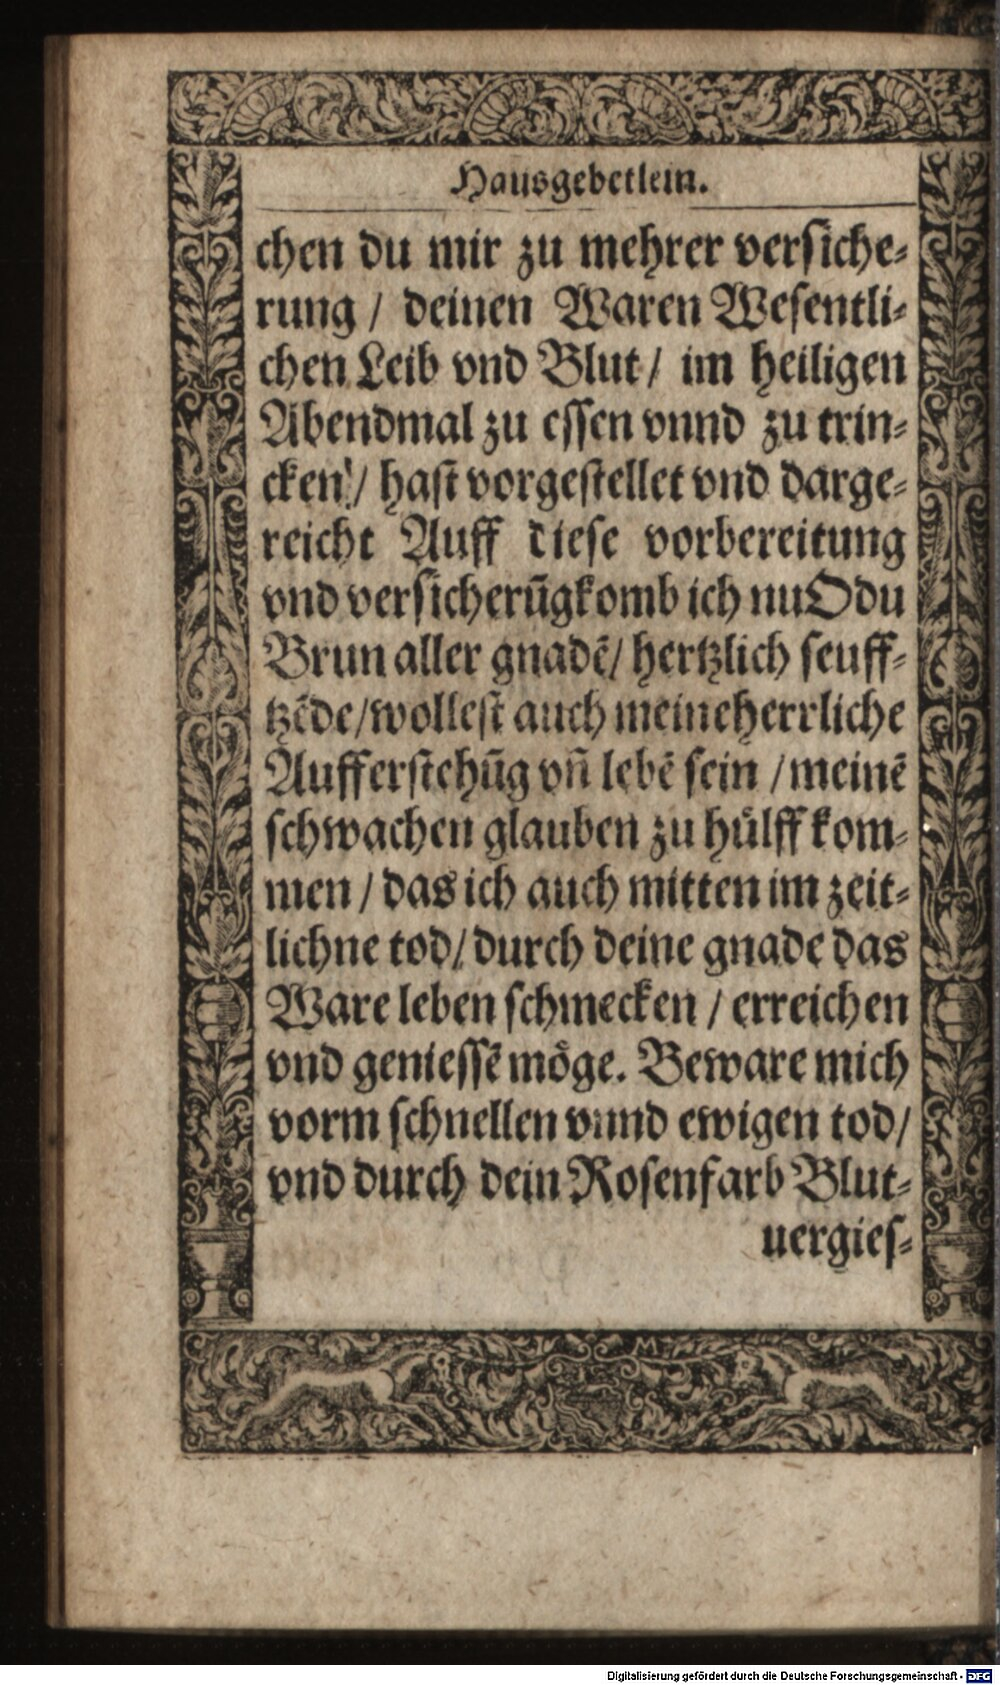 Hausgebetlein.
chen du mir zu mehrer versiche⸗
rung / deinen Waren Wesentli⸗
chen Leib vnd Blut / im heiligen
Abendmal zu essen vnnd zu trin⸗
cken / hast vorgestellet vnd darge⸗
reicht Auff diese vorbereitung
vnd versicherūgkomb ich nu O du
Brun aller gnadē / hertzlich seuff⸗
tzēde / wollest auch meine herrliche
Aufferstehūg vn̄ lebē sein / meinē
schwachen glauben zu hülff kom⸗
men / das ich auch mitten im zeit⸗
lichne tod / durch deine gnade das
Ware leben schmecken / erreichen
vnd geniessē möge. Beware mich
vorm schnellen vnnd ewigen tod /
vnd durch dein Rosenfarb Blut⸗
uergies⸗
Digitalisierung gefördert durch die Deutsche Forschungsgemeinschaft - DFG